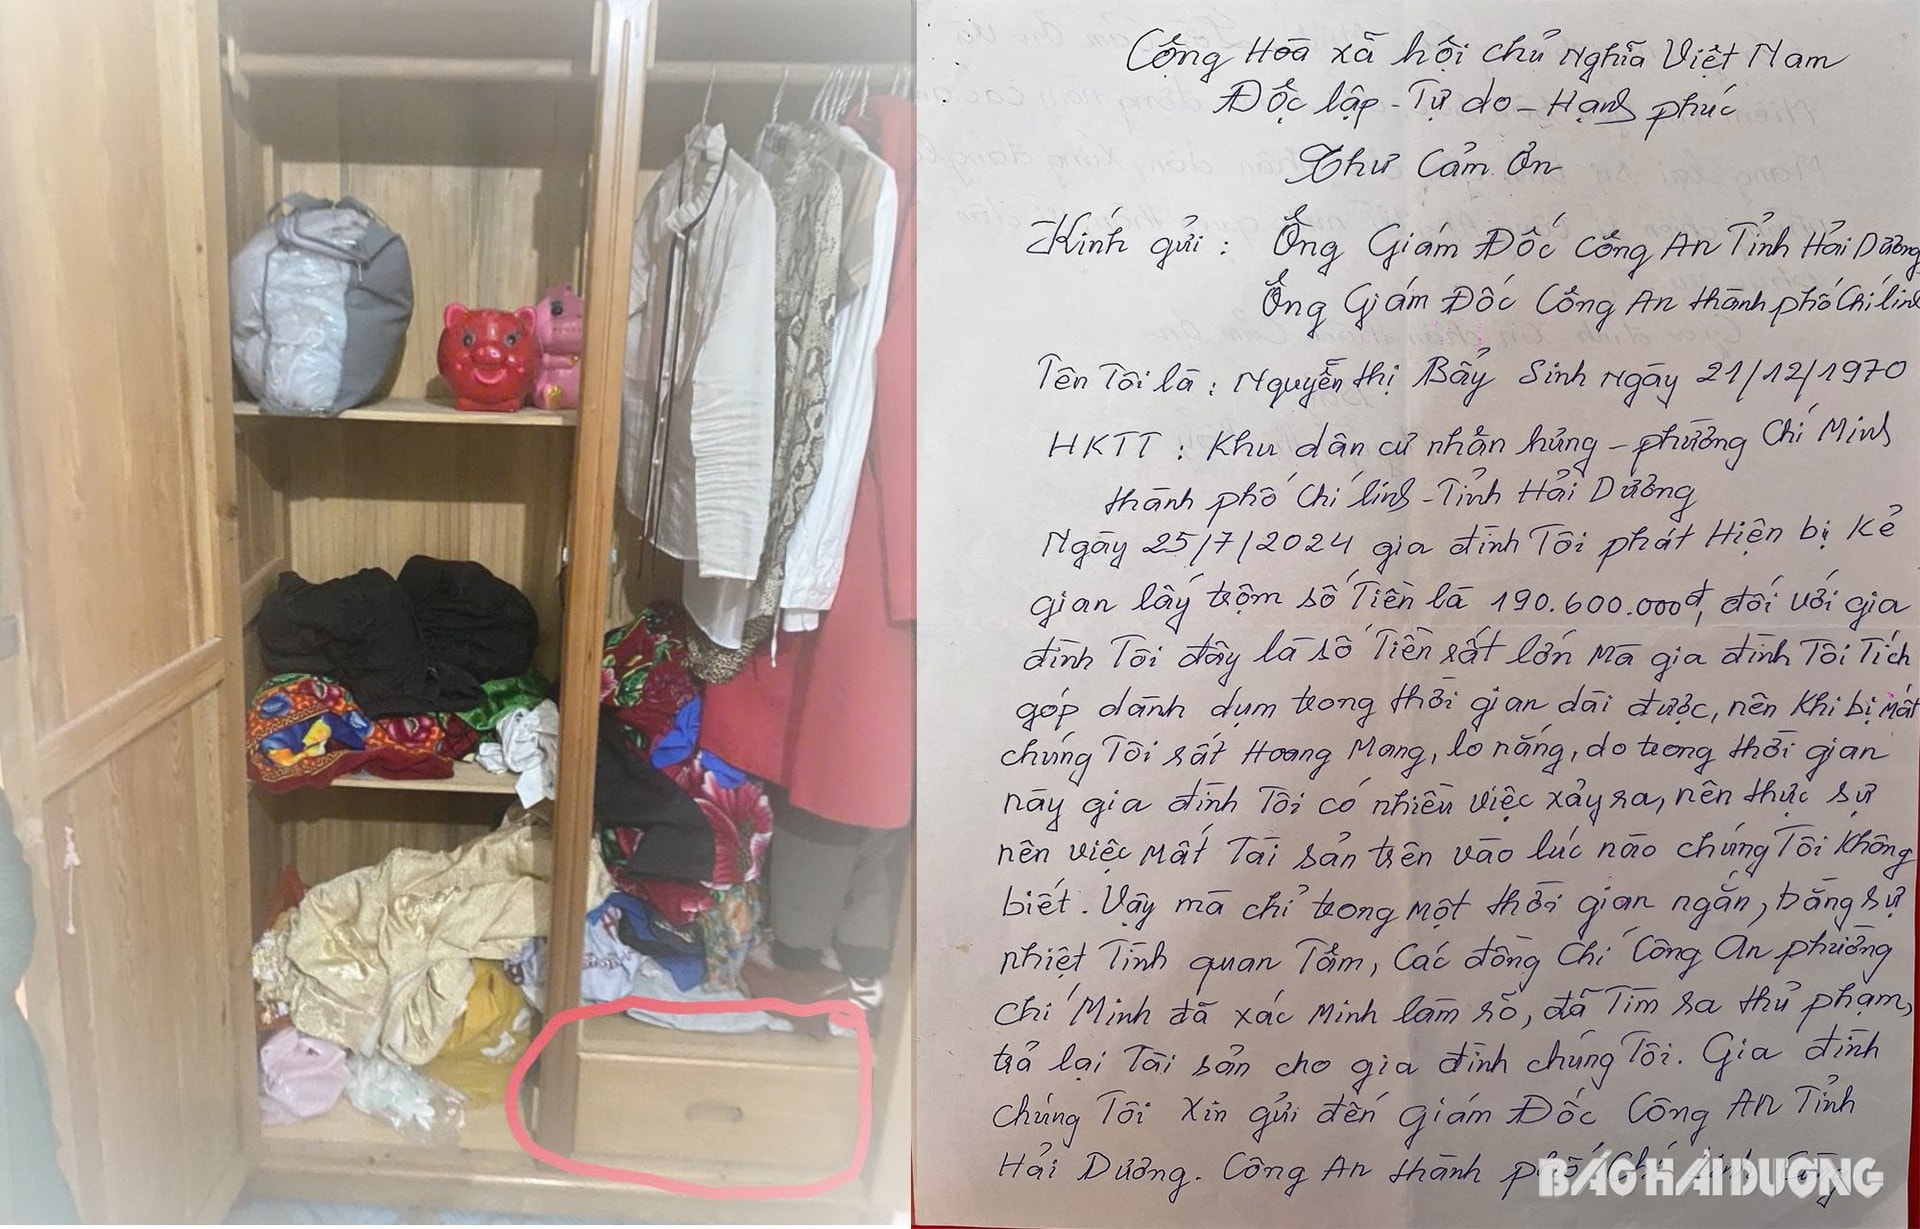 Cộng Hòa xã hội chủ Nghĩa Việt Nam
Độc lập - Tự do - Hạnh phúc
Thư Cảm Ơn
Kính gửi : Ông Giám Đốc Công An Tỉnh Hải Dương
Ông Giám Đốc Công An thành phố Chí linh
Tên Tôi là : Nguyễn thị Bẩy Sinh ngày 21/12/1970
HKTT : Khu dân cư nhân hưng - phường Chí Minh
thành phố Chí linh - Tỉnh Hải Dương
Ngày 25/7/2024 gia đình Tôi phát Hiện bị Kẻ
gian lấy trộm số Tiền là 190.600.000đ, đối với gia
đình Tôi đây là số Tiền rất lớn mà gia đình Tôi Tích
góp dành dụm trong thời gian dài được, nên Khi bị Mất
chúng Tôi rất Hoang Mang, lo nắng, do trong thời gian
này gia đình Tôi có nhiều việc xảy ra, nên thực sự
nên việc Mất Tài sản trên vào lúc nào chúng Tôi Không
biết. Vậy mà chỉ trong một thời gian ngắn, bằng sự
nhiệt Tình quan Tâm, Các đồng Chí Công An phường
chí Minh đã xác Minh làm rõ, đã Tìm ra thủ phạm,
trả lại Tài sản cho gia đình chúng Tôi. Gia đình
chúng Tôi xin gửi đến giám Đốc Công An Tỉnh
Hải Dương. Công An thành phố Chí linh
BÁO HẢI DƯƠNG